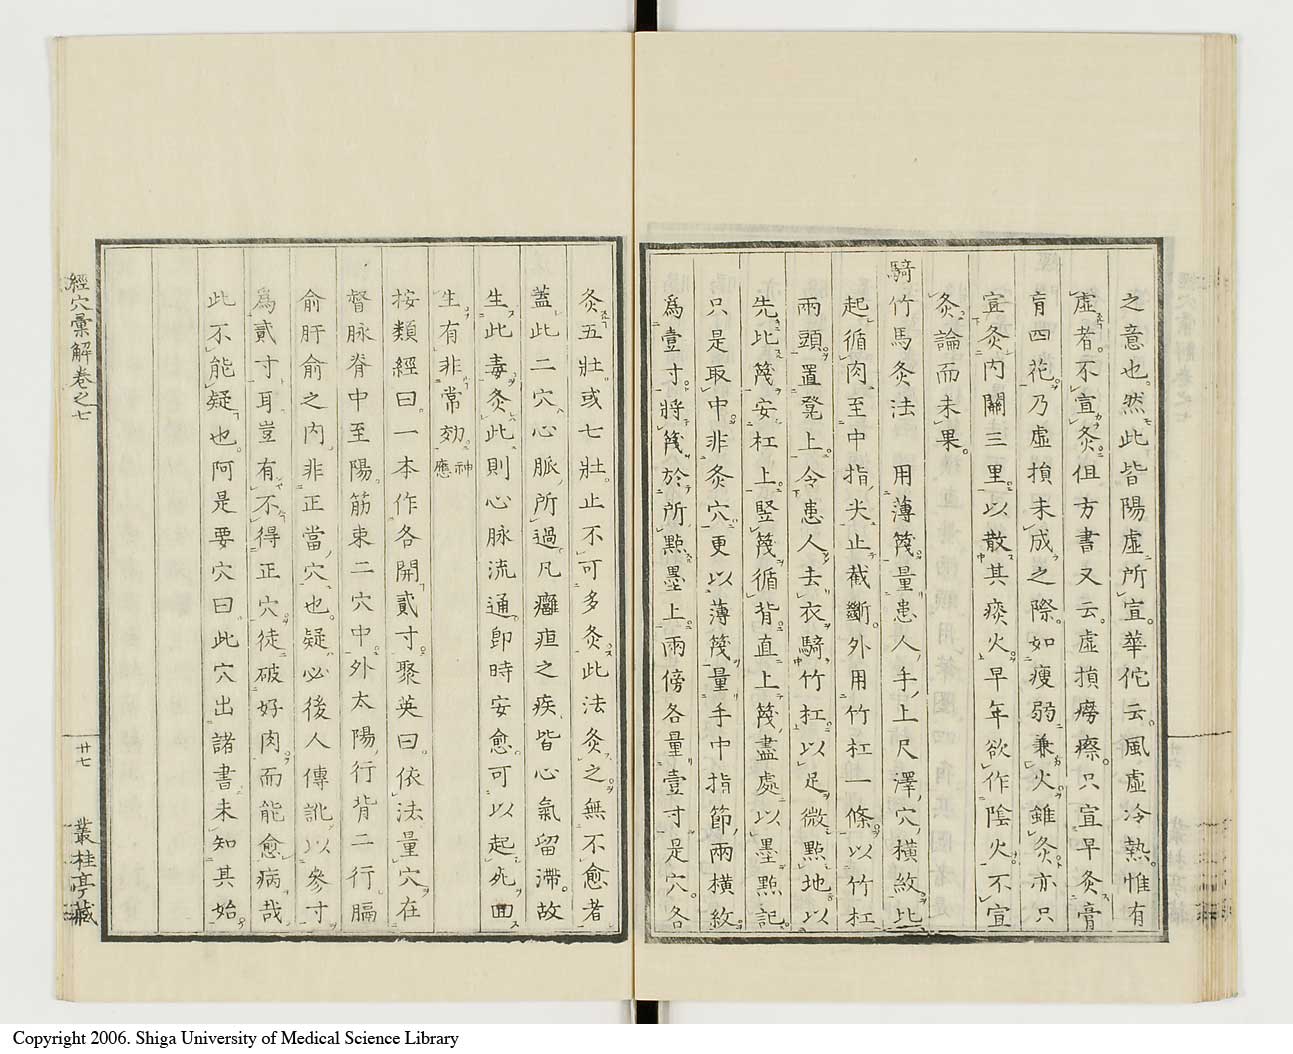 之意也。然此皆陽虛所宜。華佗云。風虛冷熱。惟有
虛者。不宜灸。但方書又云。虛損癆瘵。只宜早灸膏
肓四花。乃虛損未成之際。如瘦弱兼火。雖灸亦只
宜灸內關三里。以散其痰火。早年欲作陰火。不宜
灸論而未果。
騎竹馬灸法 用薄篾量患人手上尺澤穴橫紋比
起循肉至中指尖止截斷。外用竹杠一條。以竹杠
兩頭置凳上。令患人去衣騎竹杠。以足微點地。以
先比篾安杠上。竪篾循背直上篾盡處。以墨點記。
只是取中非灸穴。更以薄篾量手中指節兩橫紋。
為壹寸。將篾於所點墨上。兩傍各量壹寸是穴。各
灸五壯或七壯。止不可多灸。此法灸之。無不愈者
蓋此二穴。心脈所過。凡癰疽之疾。皆心氣留滯。故
生此毒。灸此則心脈流通。即時安愈。可以起死回
生。有非常効。神應
按類經曰。一本作各開貳寸。聚英曰。依法量穴。在
督脉脊中至陽筋束二穴中。外太陽行背二行膈
俞肝俞之內。非正當穴也。疑必後人傳訛。以參寸
為貳寸耳。豈有不得正穴。徒破好肉。而能愈病哉
此不能疑也。阿是要穴曰。此穴出諸書。未知其始
經穴彙解卷之七
廿七
叢桂亭藏
Copyright 2006. Shiga University of Medical Science Library